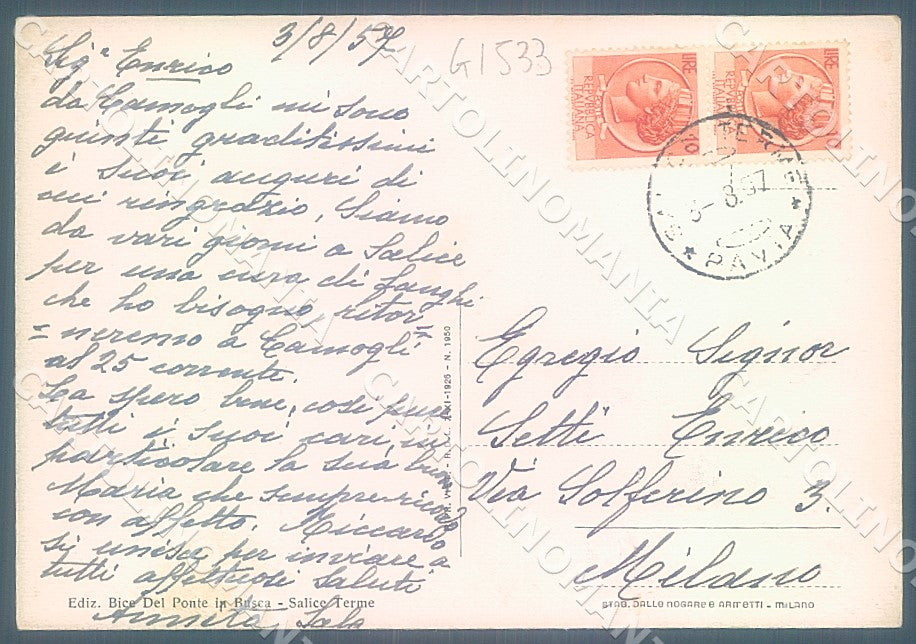 3/8/57
G1533
Sig.ª Enrico
da Camogli mi sono
giunti graditissimi
i Suoi auguri di
cui ringrazio, Siamo
da vari giorni a Salice
per una cura di fanghi
che ho bisogno, ritor
= neremo a Camogli =
al 25 corrente.
La spero bene, così pure
tutti i suoi cari, in
particolare la sua buona
Maria che sempre ricordo
con affetto. Riccardo
si unisce per inviare a
tutti affettuosi saluti
LIRE 10
REPUBBLICA ITALIANA
LIRE 10
REPUBBLICA ITALIANA
SALICE TERME
3-8.57
* PAVIA *
Egregio Signor
Setti Enrico
Via Solferino 3.
Milano
Ediz. Bice Del Ponte in Busca - Salice Terme
STAB. DALLE NOGARE E ARMETTI - MILANO
CARTOLINOMANIA